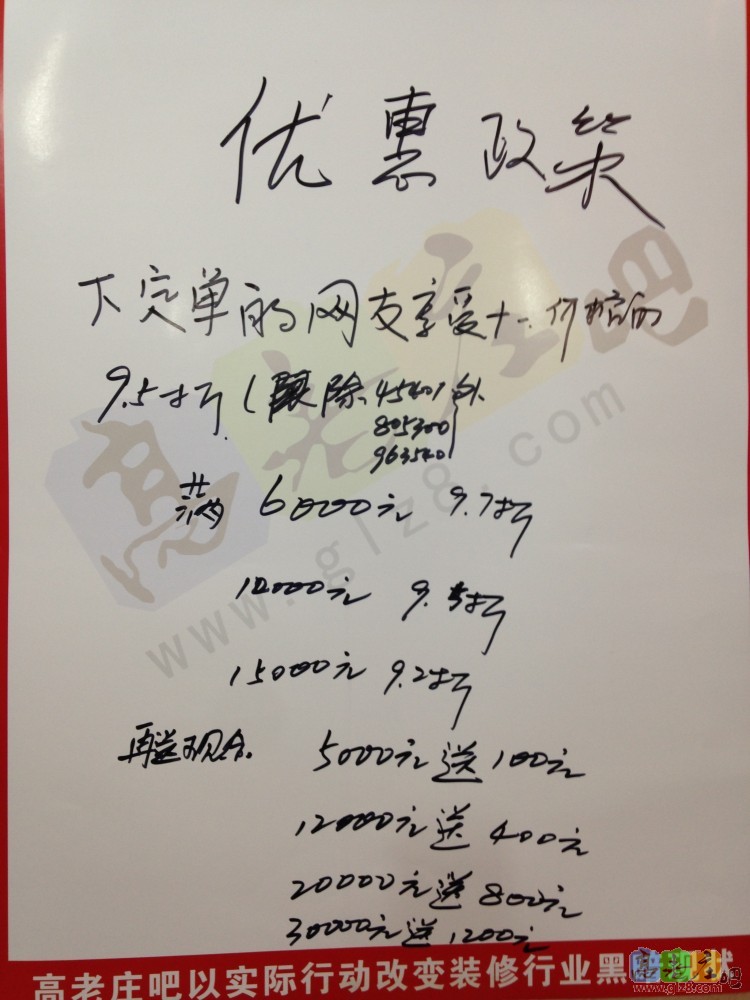 优惠政策
下定单的网友享受十一价格的
9.5折(除45401外
805300
963540
满 6000元 9.7折
10000元 9.5折
15000元 9.2折
再送现金. 5000元送100元
12000元送400元
20000元送800元
30000元送1200元
高老庄吧
www.glz8.com
高老庄吧以实际行动改变装修行业黑
状
高老庄吧
www.glz8.com